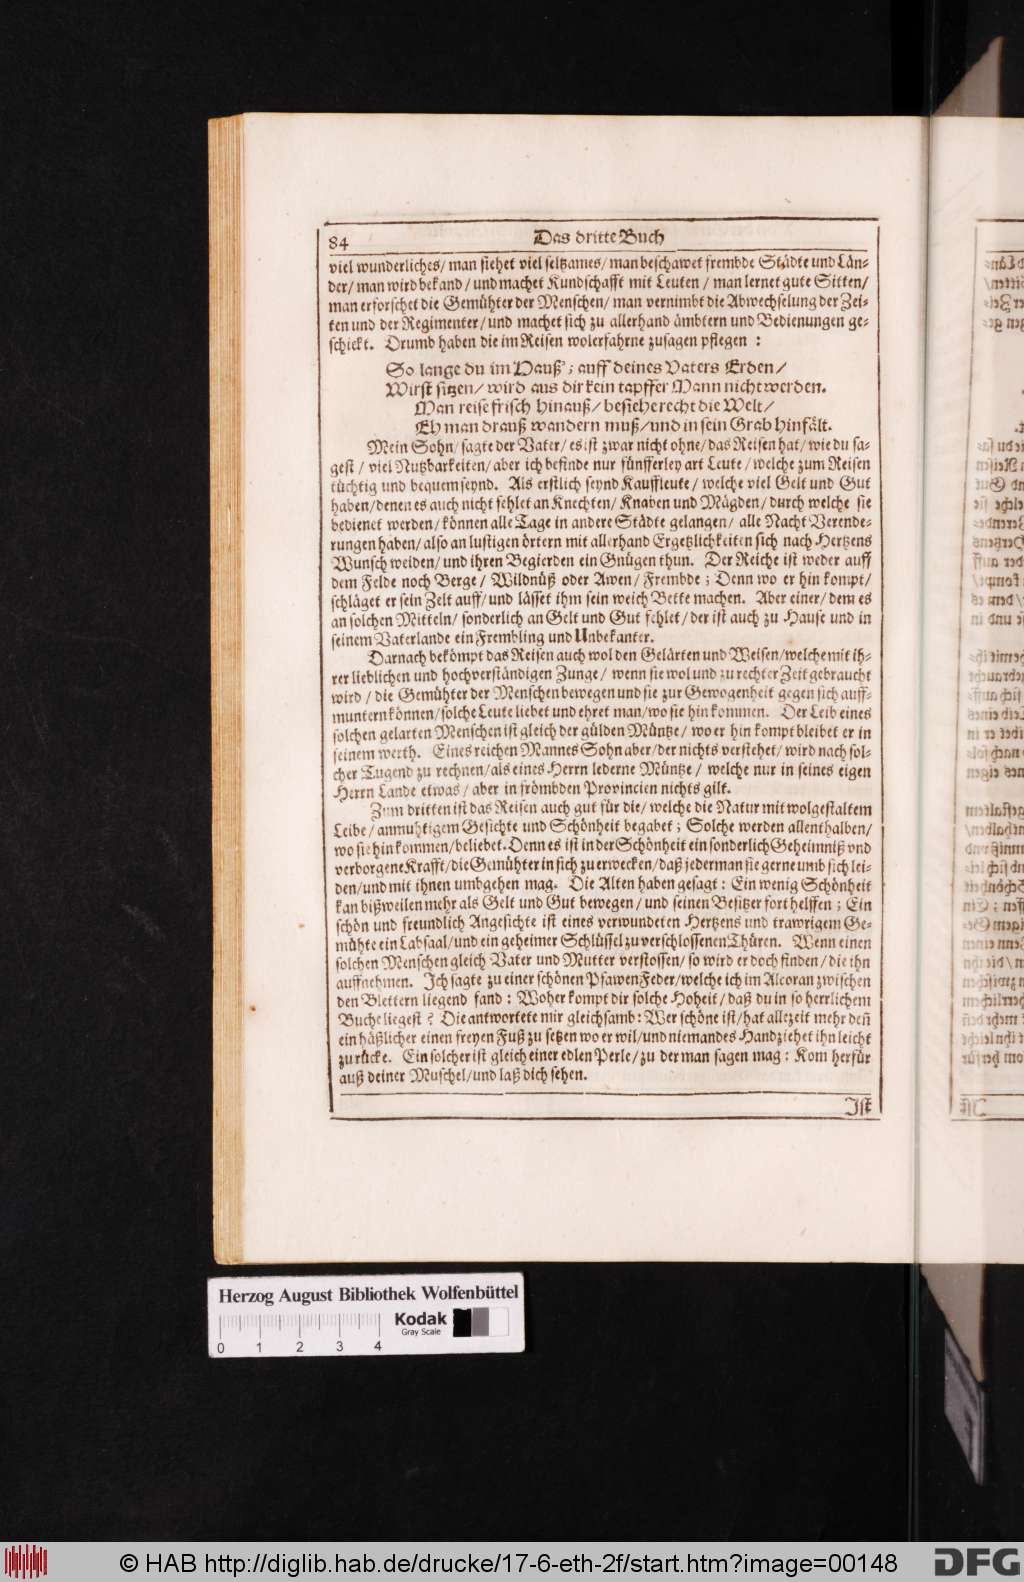 84
Das dritte Buch
viel wunderliches/ man siehet viel seltzames/ man beschawet frembde Städte und Län-
der/ man wird bekand/ und machet Kundschafft mit Leuten / man lernet gute Sitten/
man erforschet die Gemühter der Menschen/ man vernimbt die Abwechselung der Zei-
ten und der Regimenter/ und machet sich zu allerhand ämbtern und Bedienungen ge-
schickt. Drumb haben die im Reisen wolerfahrne zusagen pflegen :
So lange du im Hauß'; auff deines Vaters Erden/
Wirst sitzen/ wird aus dir kein tapffer Mann nicht werden.
Man reise frisch hinauß/ besiehe recht die Welt/
Eh man drauß wandern muß/ und in sein Grab hinfält.
Mein Sohn/ sagte der Vater/ es ist zwar nicht ohne/ das Reisen hat/ wie du sa-
gest / viel Nutzbarkeiten/ aber ich befinde nur fünfferley art Leute / welche zum Reisen
tüchtig und bequem seynd. Als erstlich seynd Kauffleute/ welche viel Gelt und Gut
haben/ denen es auch nicht fehlet an Knechten/ Knaben und Mägden/ durch welche sie
bedienet werden/ können alle Tage in andere Städte gelangen/ alle Nacht Verende-
rungen haben/ also an lustigen örtern mit allerhand Ergetzlichkeiten sich nach Hertzens
Wunsch weiden/ und ihren Begierden ein Gnügen thun. Der Reiche ist weder auff
dem Felde noch Berge / Wildnüß oder Awen/ Frembde ; Denn wo er hin kompt/
schläget er sein Zelt auff/ und lässet ihm sein weich Bette machen. Aber einer/ dem es
an solchen Mitteln/ sonderlich an Gelt und Gut fehlet/ der ist auch zu Hause und in
seinem Vaterlande ein Frembling und Unbekanter.
Darnach bekömpt das Reisen auch wol den Gelärten und Weisen/ welche mit ih-
rer lieblichen und hochverständigen Zunge / wenn sie wol und zu rechter Zeit gebraucht
wird / die Gemühter der Menschen bewegen und sie zur Gewogenheit gegen sich auff-
muntern können/ solche Leute liebet und ehret man/ wo sie hin kommen. Der Leib eines
solchen gelarten Menschen ist gleich der gülden Müntze / wo er hin kompt bleibet er in
seinem werth. Eines reichen Mannes Sohn aber/ der nichts verstehet/ wird nach sol-
cher Tugend zu rechnen/ als eines Herrn lederne Müntze / welche nur in seines eigen
Herrn Lande etwas / aber in frömbden Provincien nichts gilt.
Zum dritten ist das Reisen auch gut für die/ welche die Natur mit wolgestaltem
Leibe / anmuhtigem Gesichte und Schönheit begabet ; Solche werden allenthalben/
wo sie hin kommen/ beliebet. Denn es ist in der Schönheit ein sonderlich Geheimniß vnd
verborgene Krafft/ die Gemühter in sich zu erwecken/ daß jederman sie gerne umb sich lei-
den/ und mit ihnen umbgehen mag. Die Alten haben gesagt : Ein wenig Schönheit
kan bißweilen mehr als Gelt und Gut bewegen / und seinen Besitzer fort helffen ; Ein
schön und freundlich Angesichte ist eines verwundeten Hertzens und trawrigem Ge-
mühte ein Labsaal/ und ein geheimer Schlüssel zu verschlossenen Thüren. Wenn einen
solchen Menschen gleich Vater und Mutter verstossen/ so wird er doch finden / die ihn
auffnehmen. Ich sagte zu einer schönen Pfawen Feder/ welche ich im Alcoran zwischen
den Blettern liegend fand : Woher kompt dir solche Hoheit / daß du in so herrlichem
Buche liegest ? Die antwortete mir gleichsamb : Wer schöne ist/ hat allezeit mehr deñ
ein häßlicher einen freyen Fuß zu setzen wo er wil/ und niemandes Hand ziehet ihn leicht
zu rücke. Ein solcher ist gleich einer edlen Perle/ zu der man sagen mag : Kom herfür
auß deiner Muschel/ und laß dich sehen.
Ist
Herzog August Bibliothek Wolfenbüttel
Kodak
Gray Scale
0 1 2 3 4
© HAB http://diglib.hab.de/drucke/17-6-eth-2f/start.htm?image=00148
DFG